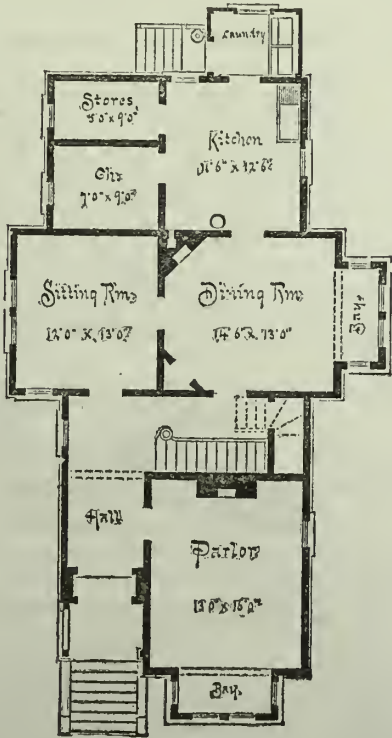 Laundry
Stores
5'0" x 9'0"
Kitchen
Chr
7'0" x 9'0"
Sitting Rm
12'0" x 13'0"
Dining Rm
14'6" x 13'0"
Bay
Hall
Parlor
13'0" x 16'0"
Bay